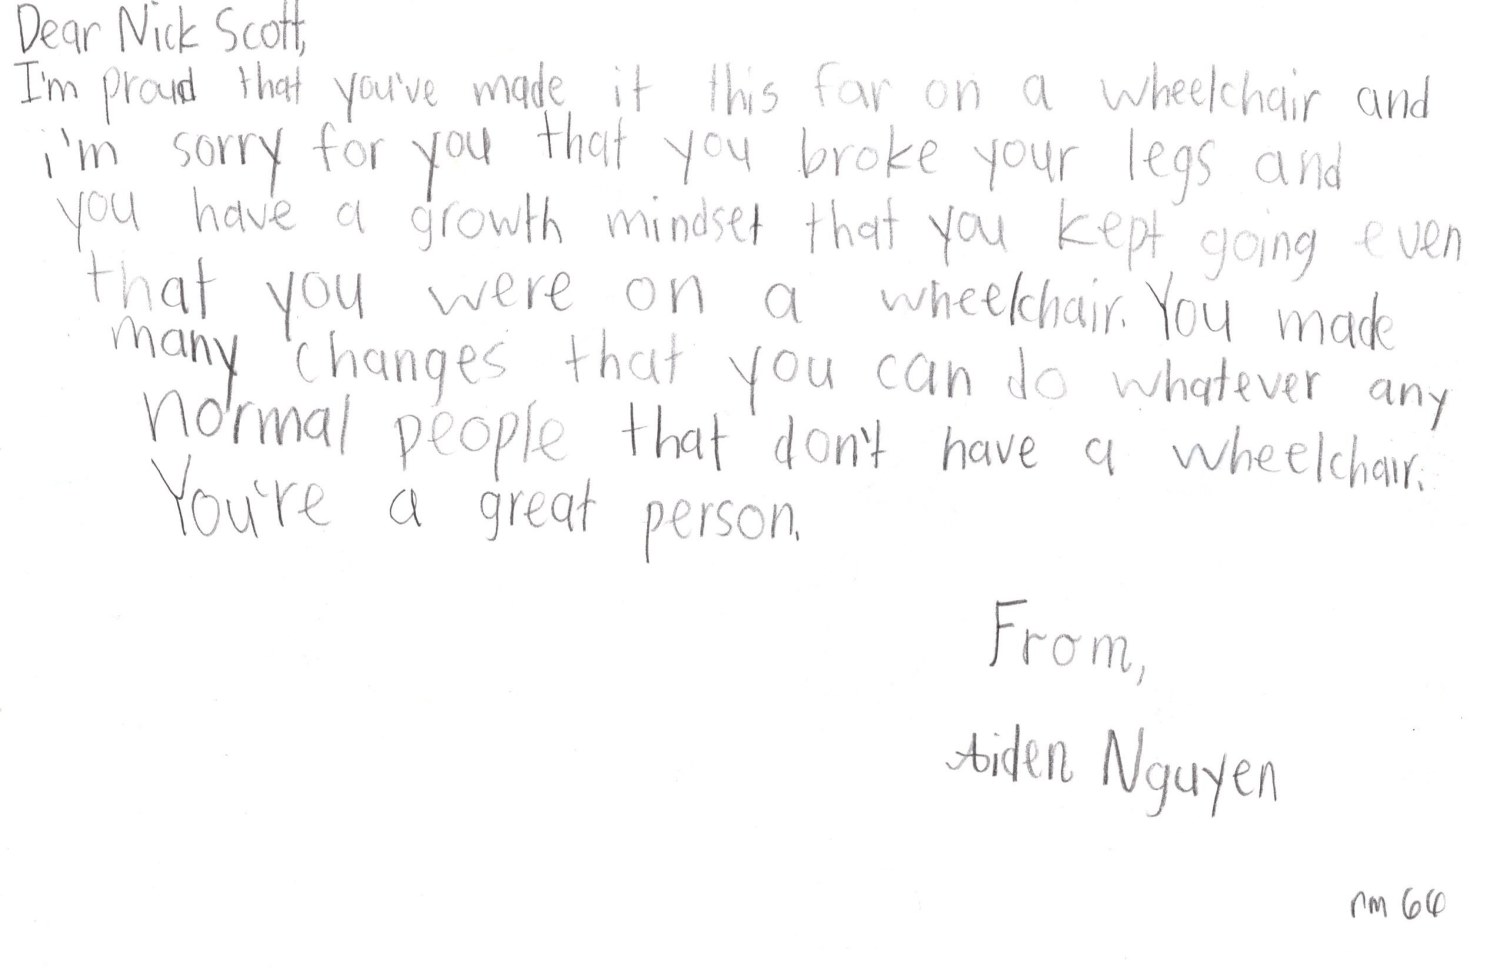 Dear Nick Scott,
I'm proud that you've made it this far on a wheelchair and
i'm sorry for you that you broke your legs and
you have a growth mindset that you kept going even
that you were on a wheelchair. You made
many changes that you can do whatever any
normal people that don't have a wheelchair.
You're a great person.
From,
Aiden Nguyen
rm 64